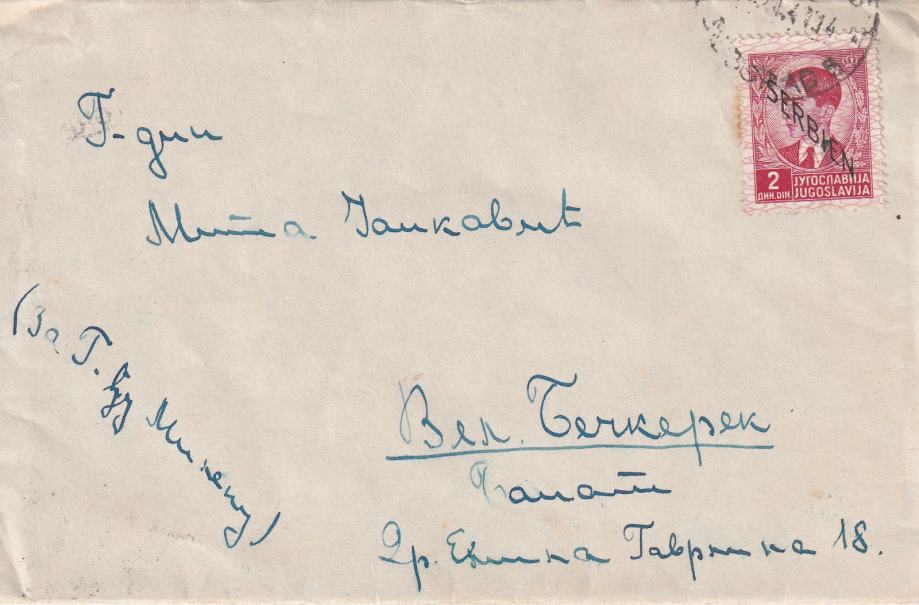 SERBIEN
2
ДИН. DIN.
ЈУГОСЛАВИЈА
JUGOSLAVIJA
Г-дин
Мита Јанкавић
(За Г.
Вел. Бечкерек
Банат
Др. Емила Гаврила 18.